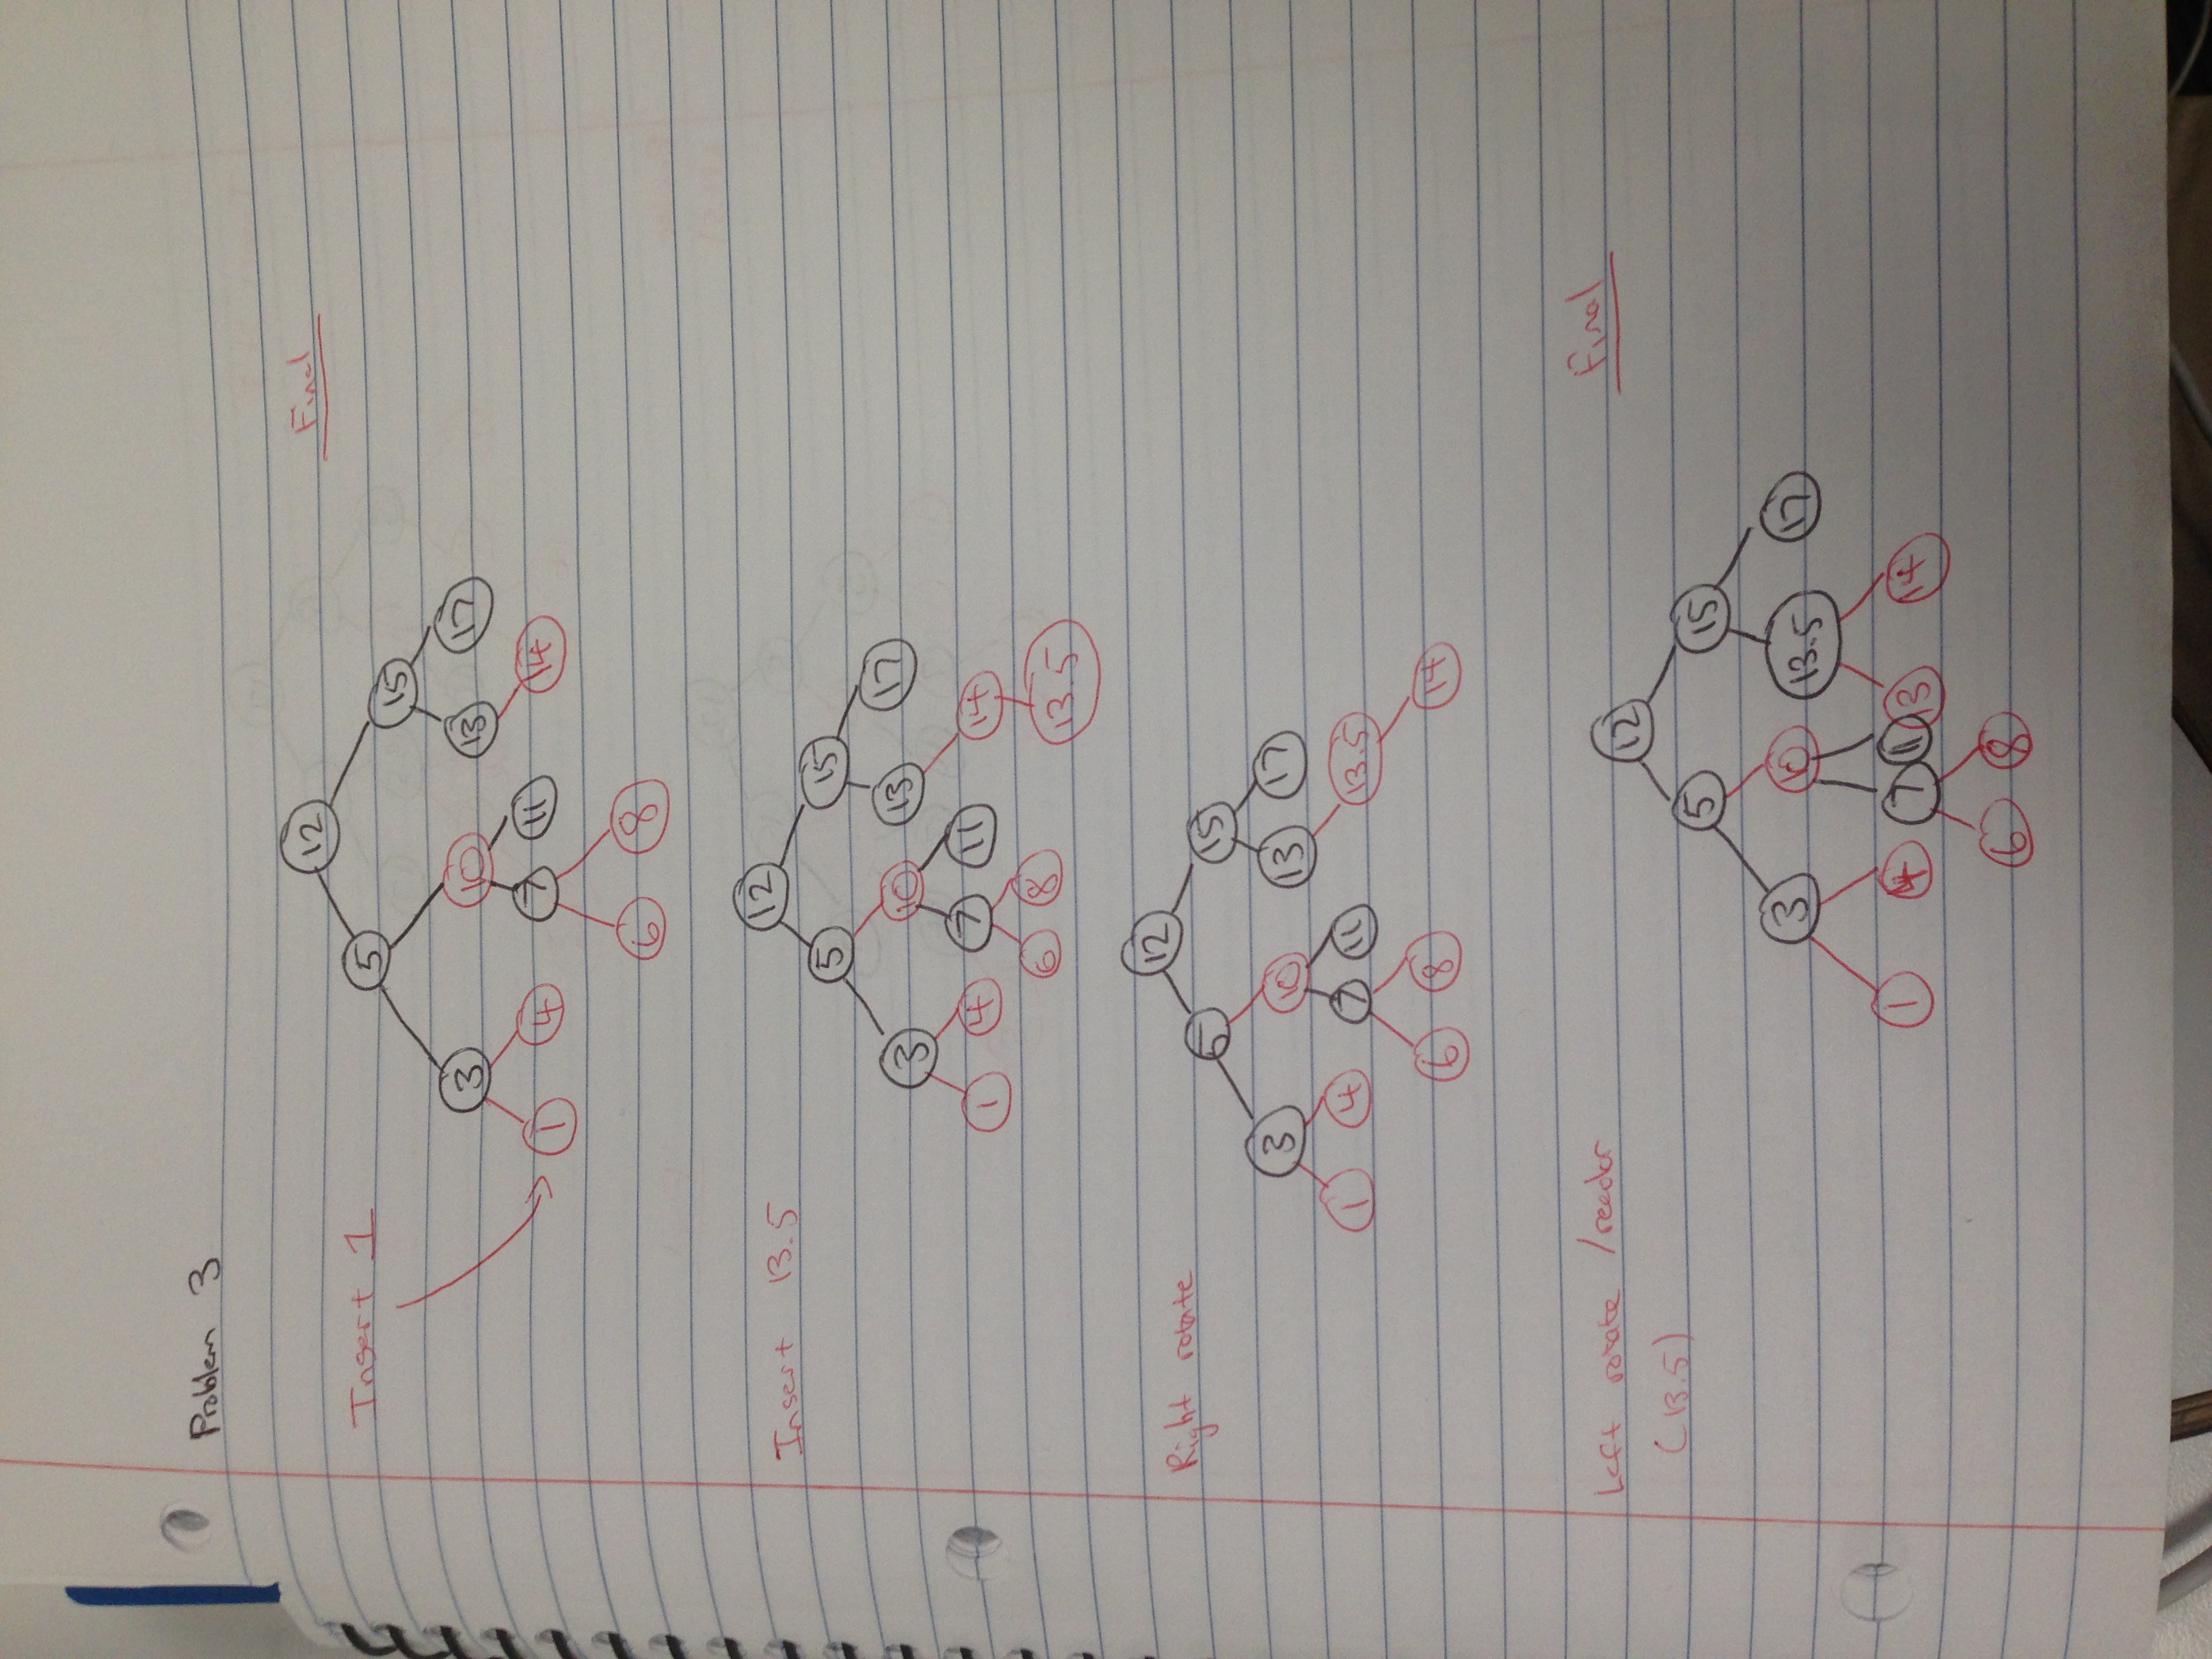 Problem 3
Final
Insert 1
12
5 15
3 10 13 17
1 4 7 11 14
6 8
Insert 13.5
12
5 15
3 10 13 17
1 4 7 11 14
6 8 13.5
Right rotate
12
5 15
3 10 13 17
1 4 7 11 13.5
6 8 14
Left rotate /recolor
(13.5)
Final
12
5 15
3 10 13.5 17
1 4 7 11 13 14
6 8